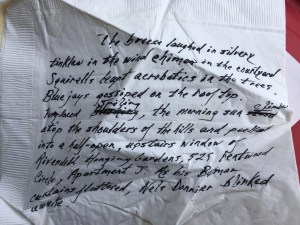 The breeze laughed in silvery
tinkles in the wind chimes in the courtyard
Squirrels leapt acrobatics in the trees.
Bluejays gossiped on the rooftop.
Smiling climbed
, the morning sun
atop the shoulders of the hills and peeked
into a half-open, upstairs window of
Hanging Gardens, 525
Circle, Apartment J. As his
curtains fluttered, Nels blinked
awake